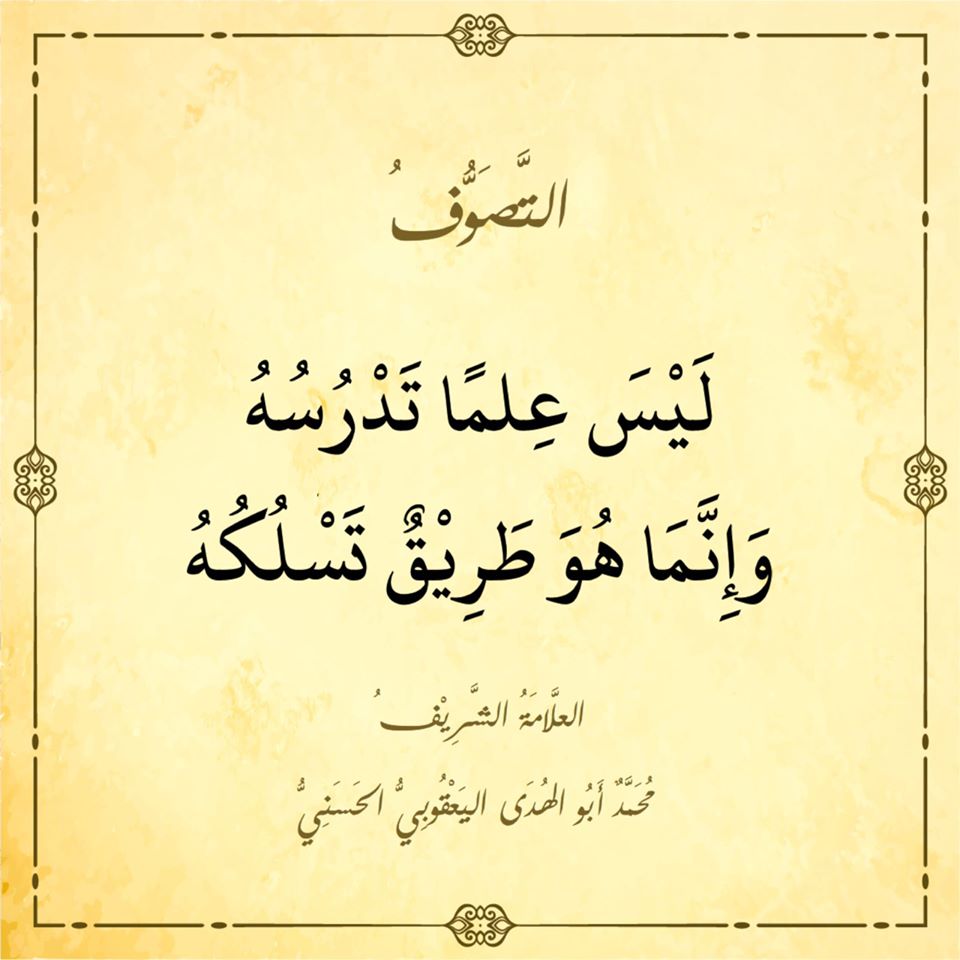 التَّصَوُّفُ
لَيْسَ عِلمًا تَدْرُسُهُ
وَإِنَّمَا هُوَ طَرِيْقٌ تَسْلُكُهُ
العلَّامَةُ الشَّرِيْفُ
مُحَمَّدٌ أَبُو الهُدَى اليَعْقُوبِيُّ الحَسَنِيُّ